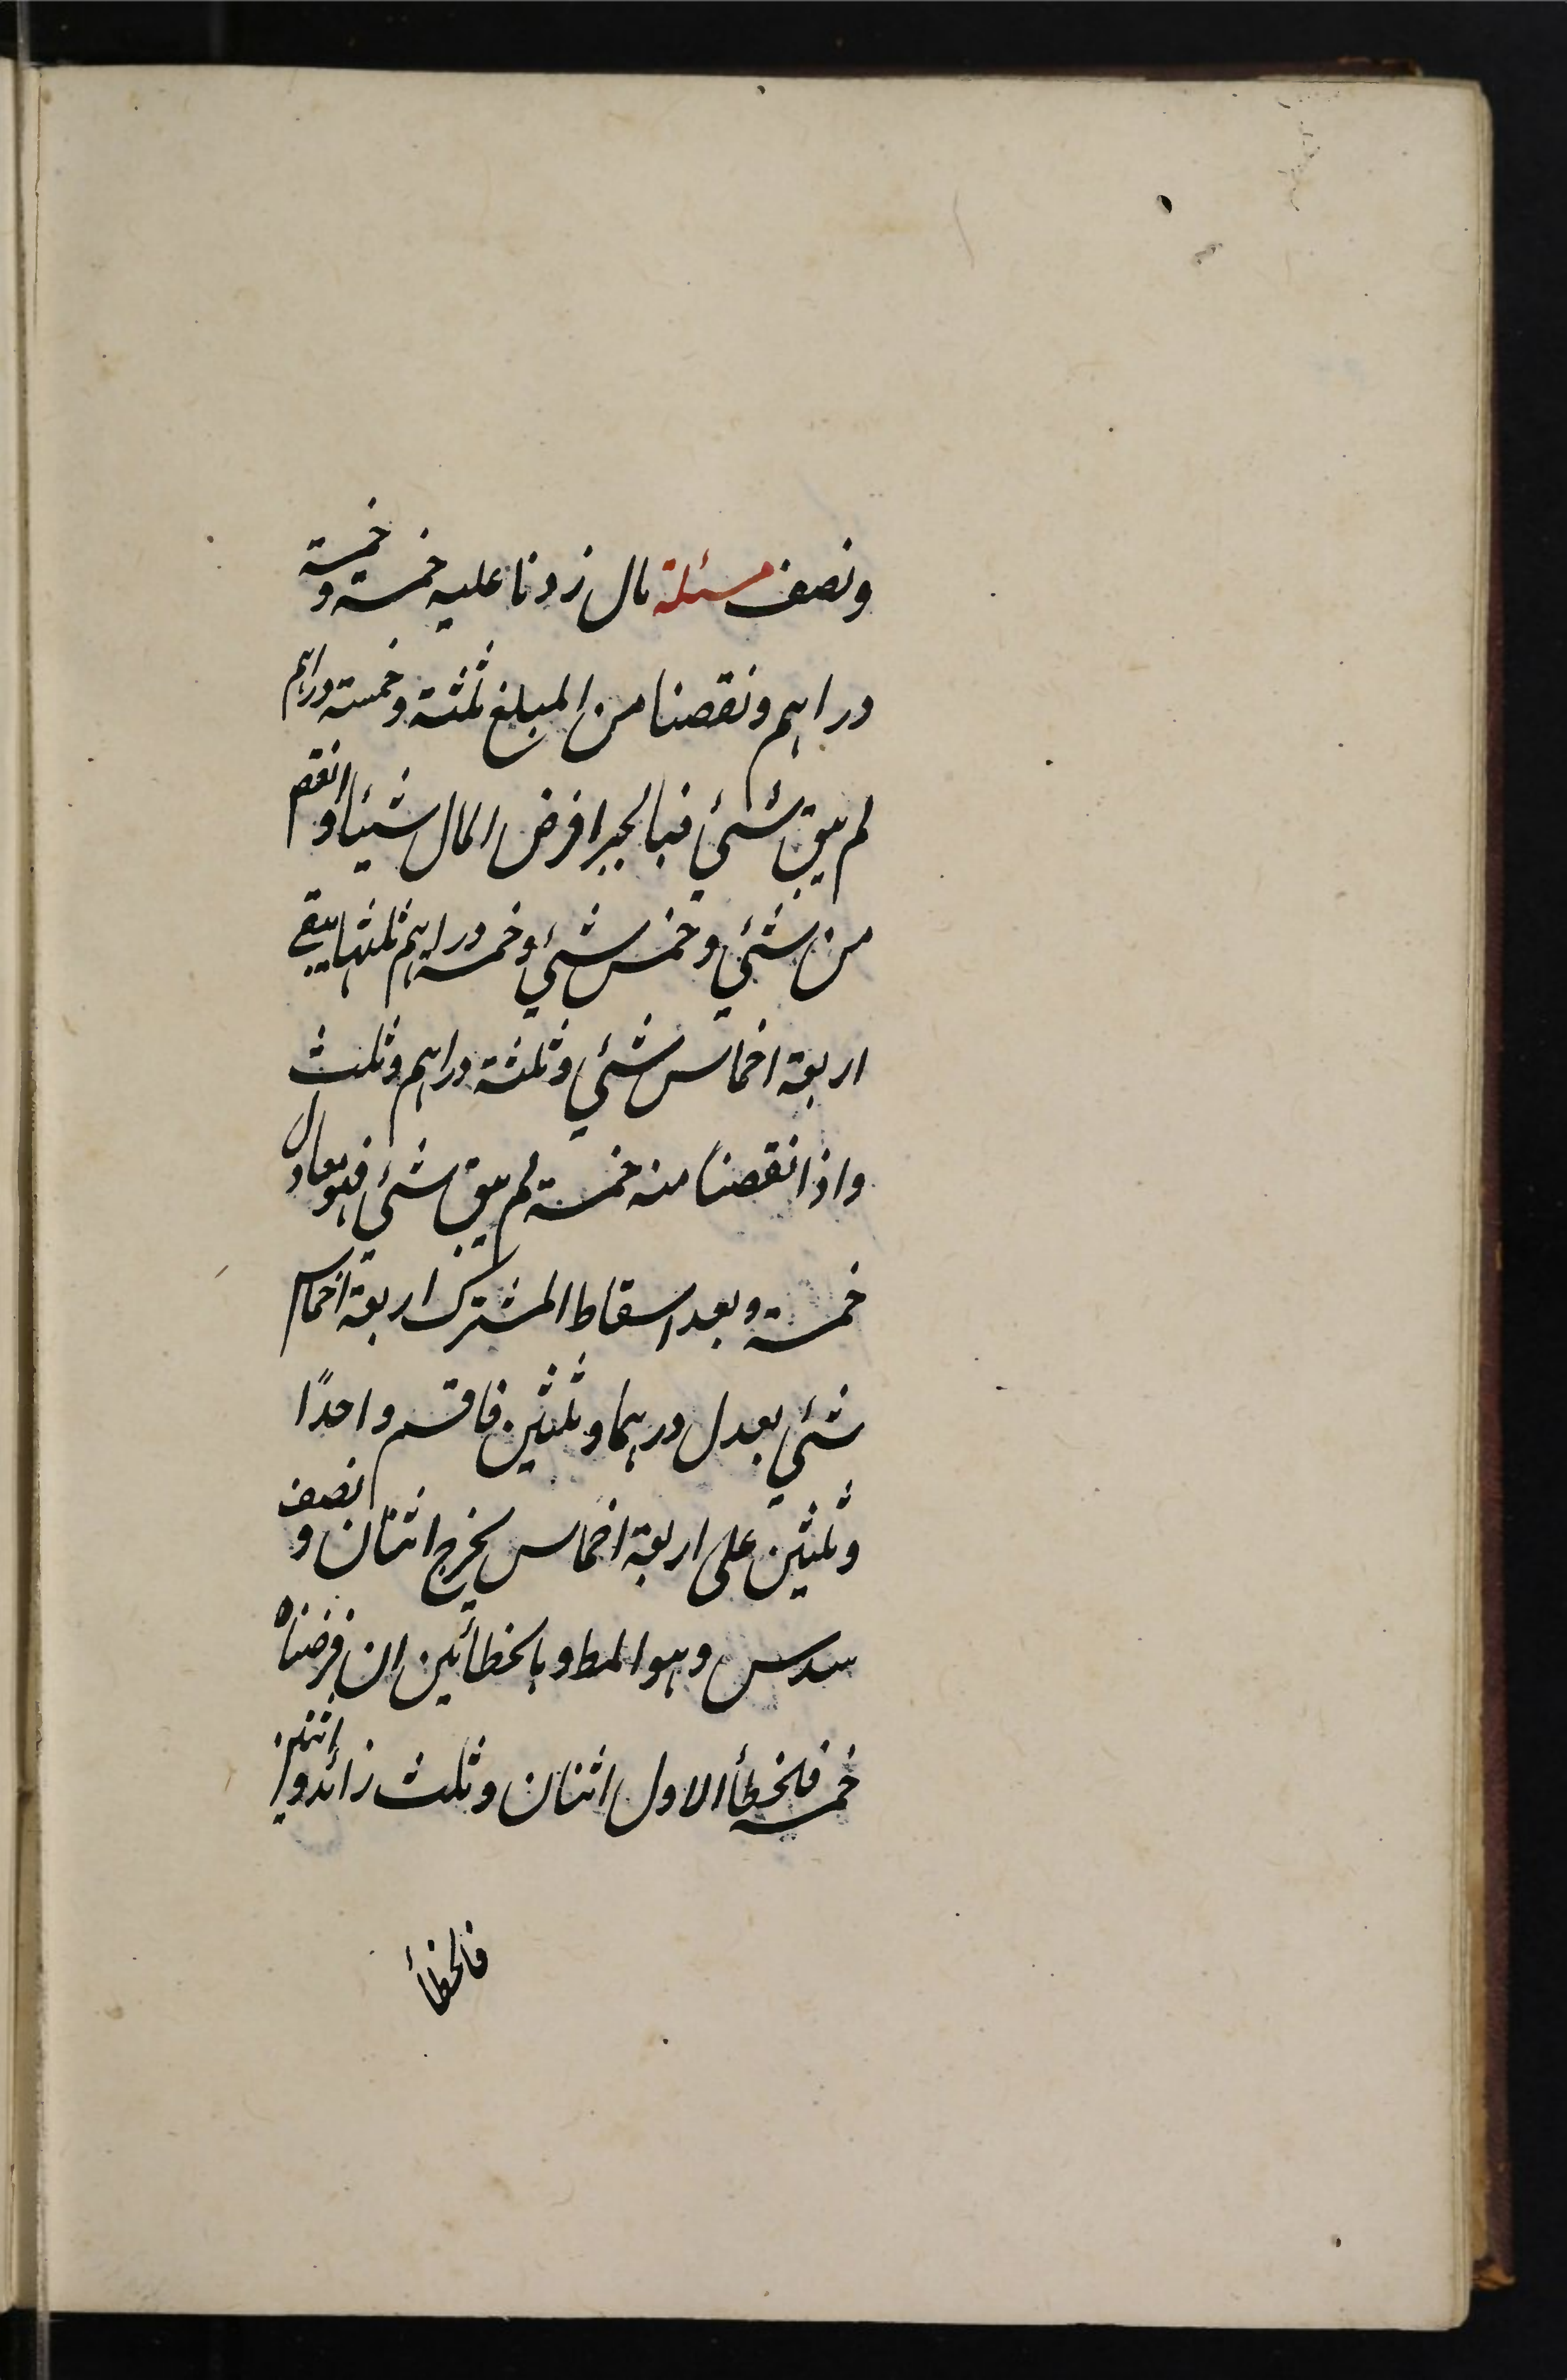 ونصف مسئلة مال زدنا عليه خمسة وخمسة
دراهم ونقصنا من المبلغ ثلثة وخمسة دراهم
لم يبق شئي فبالجبر افرض المال شيئا وانقص
من شئي وخمس شئي وخمسة دراهم ثلثها يبقى
اربعة اخماس شئي وثلثة دراهم وثلث
واذا نقصنا منه خمسة لم يبق شئي فهو معادل
خمسة وبعد اسقاط المشترك اربعة اخماس
شئي يعدل درهما وثلثين فاقسم واحدًا
وثلثين على اربعة اخماس يخرج اثنان ونصف
سدس وهو المط وبالخطأئين ان فرضناه
خمسة فلخطأ الاول اثنان وثلث زائد واثنين
فالخطأ